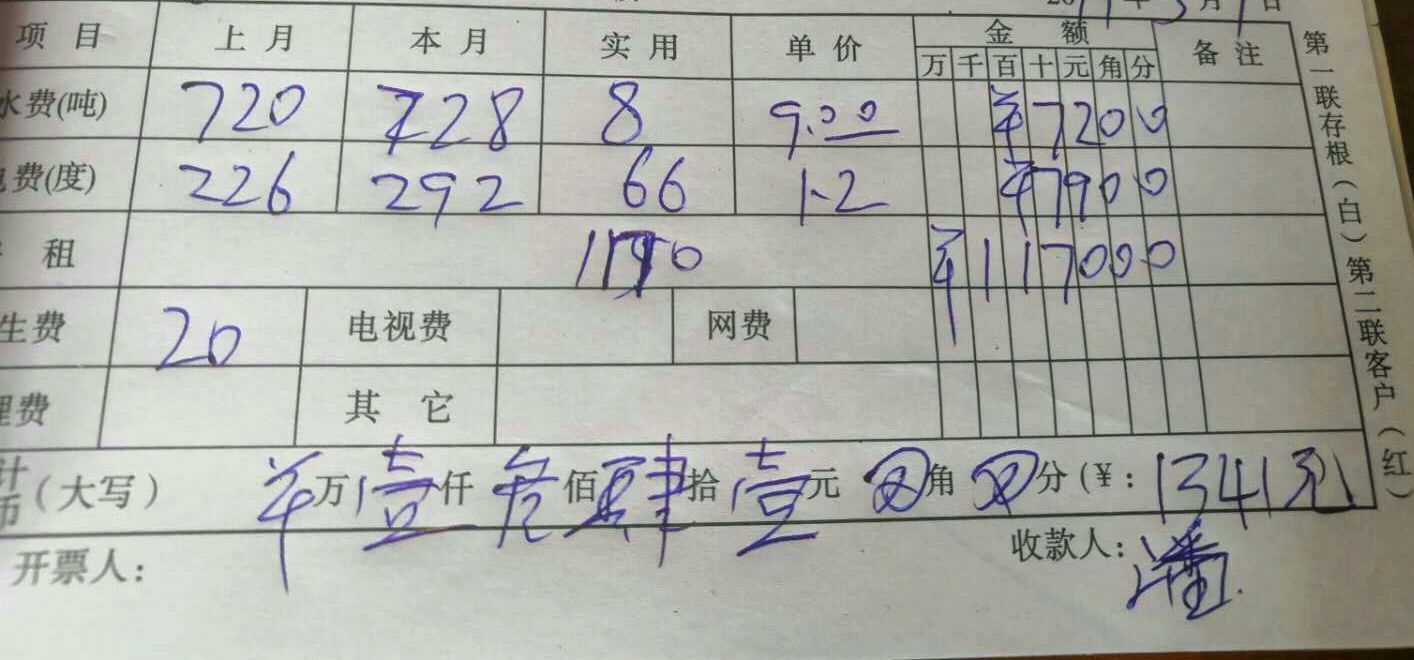 年 月 日
项目 上月 本月 实用 单价 金额 备注
万 千 百 十 元 角 分
水费(吨) 720 728 8 9.00 ¥7200
费(度) 226 292 66 1.2 ¥7900
租 1170 ¥117000
生费 20 电视费 网费
理费 其它
计
币(大写) ¥万壹仟叁佰肆拾壹元 角 分(¥:1341元)
开票人: 收款人:潘
第一联存根(白)第二联客户(红)